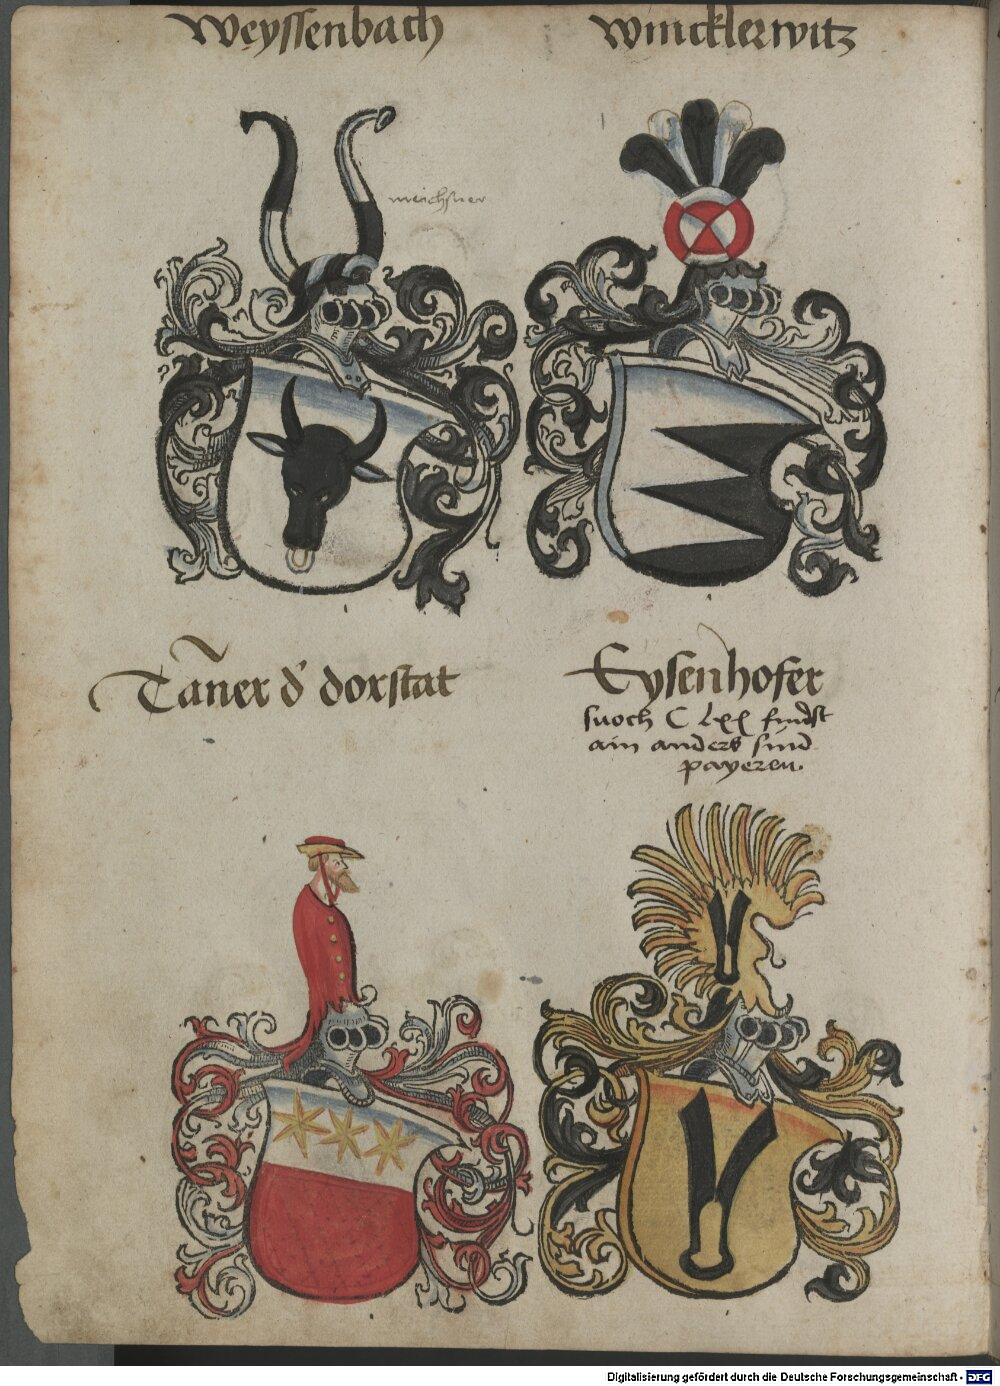 Weyssenbach
Wincklerwitz
meichsner
Tāner d' dorstat
Eysenhofer
suoch C lxx findst
ain anders sind
payeren.
Digitalisierung gefördert durch die Deutsche Forschungsgemeinschaft - DFG